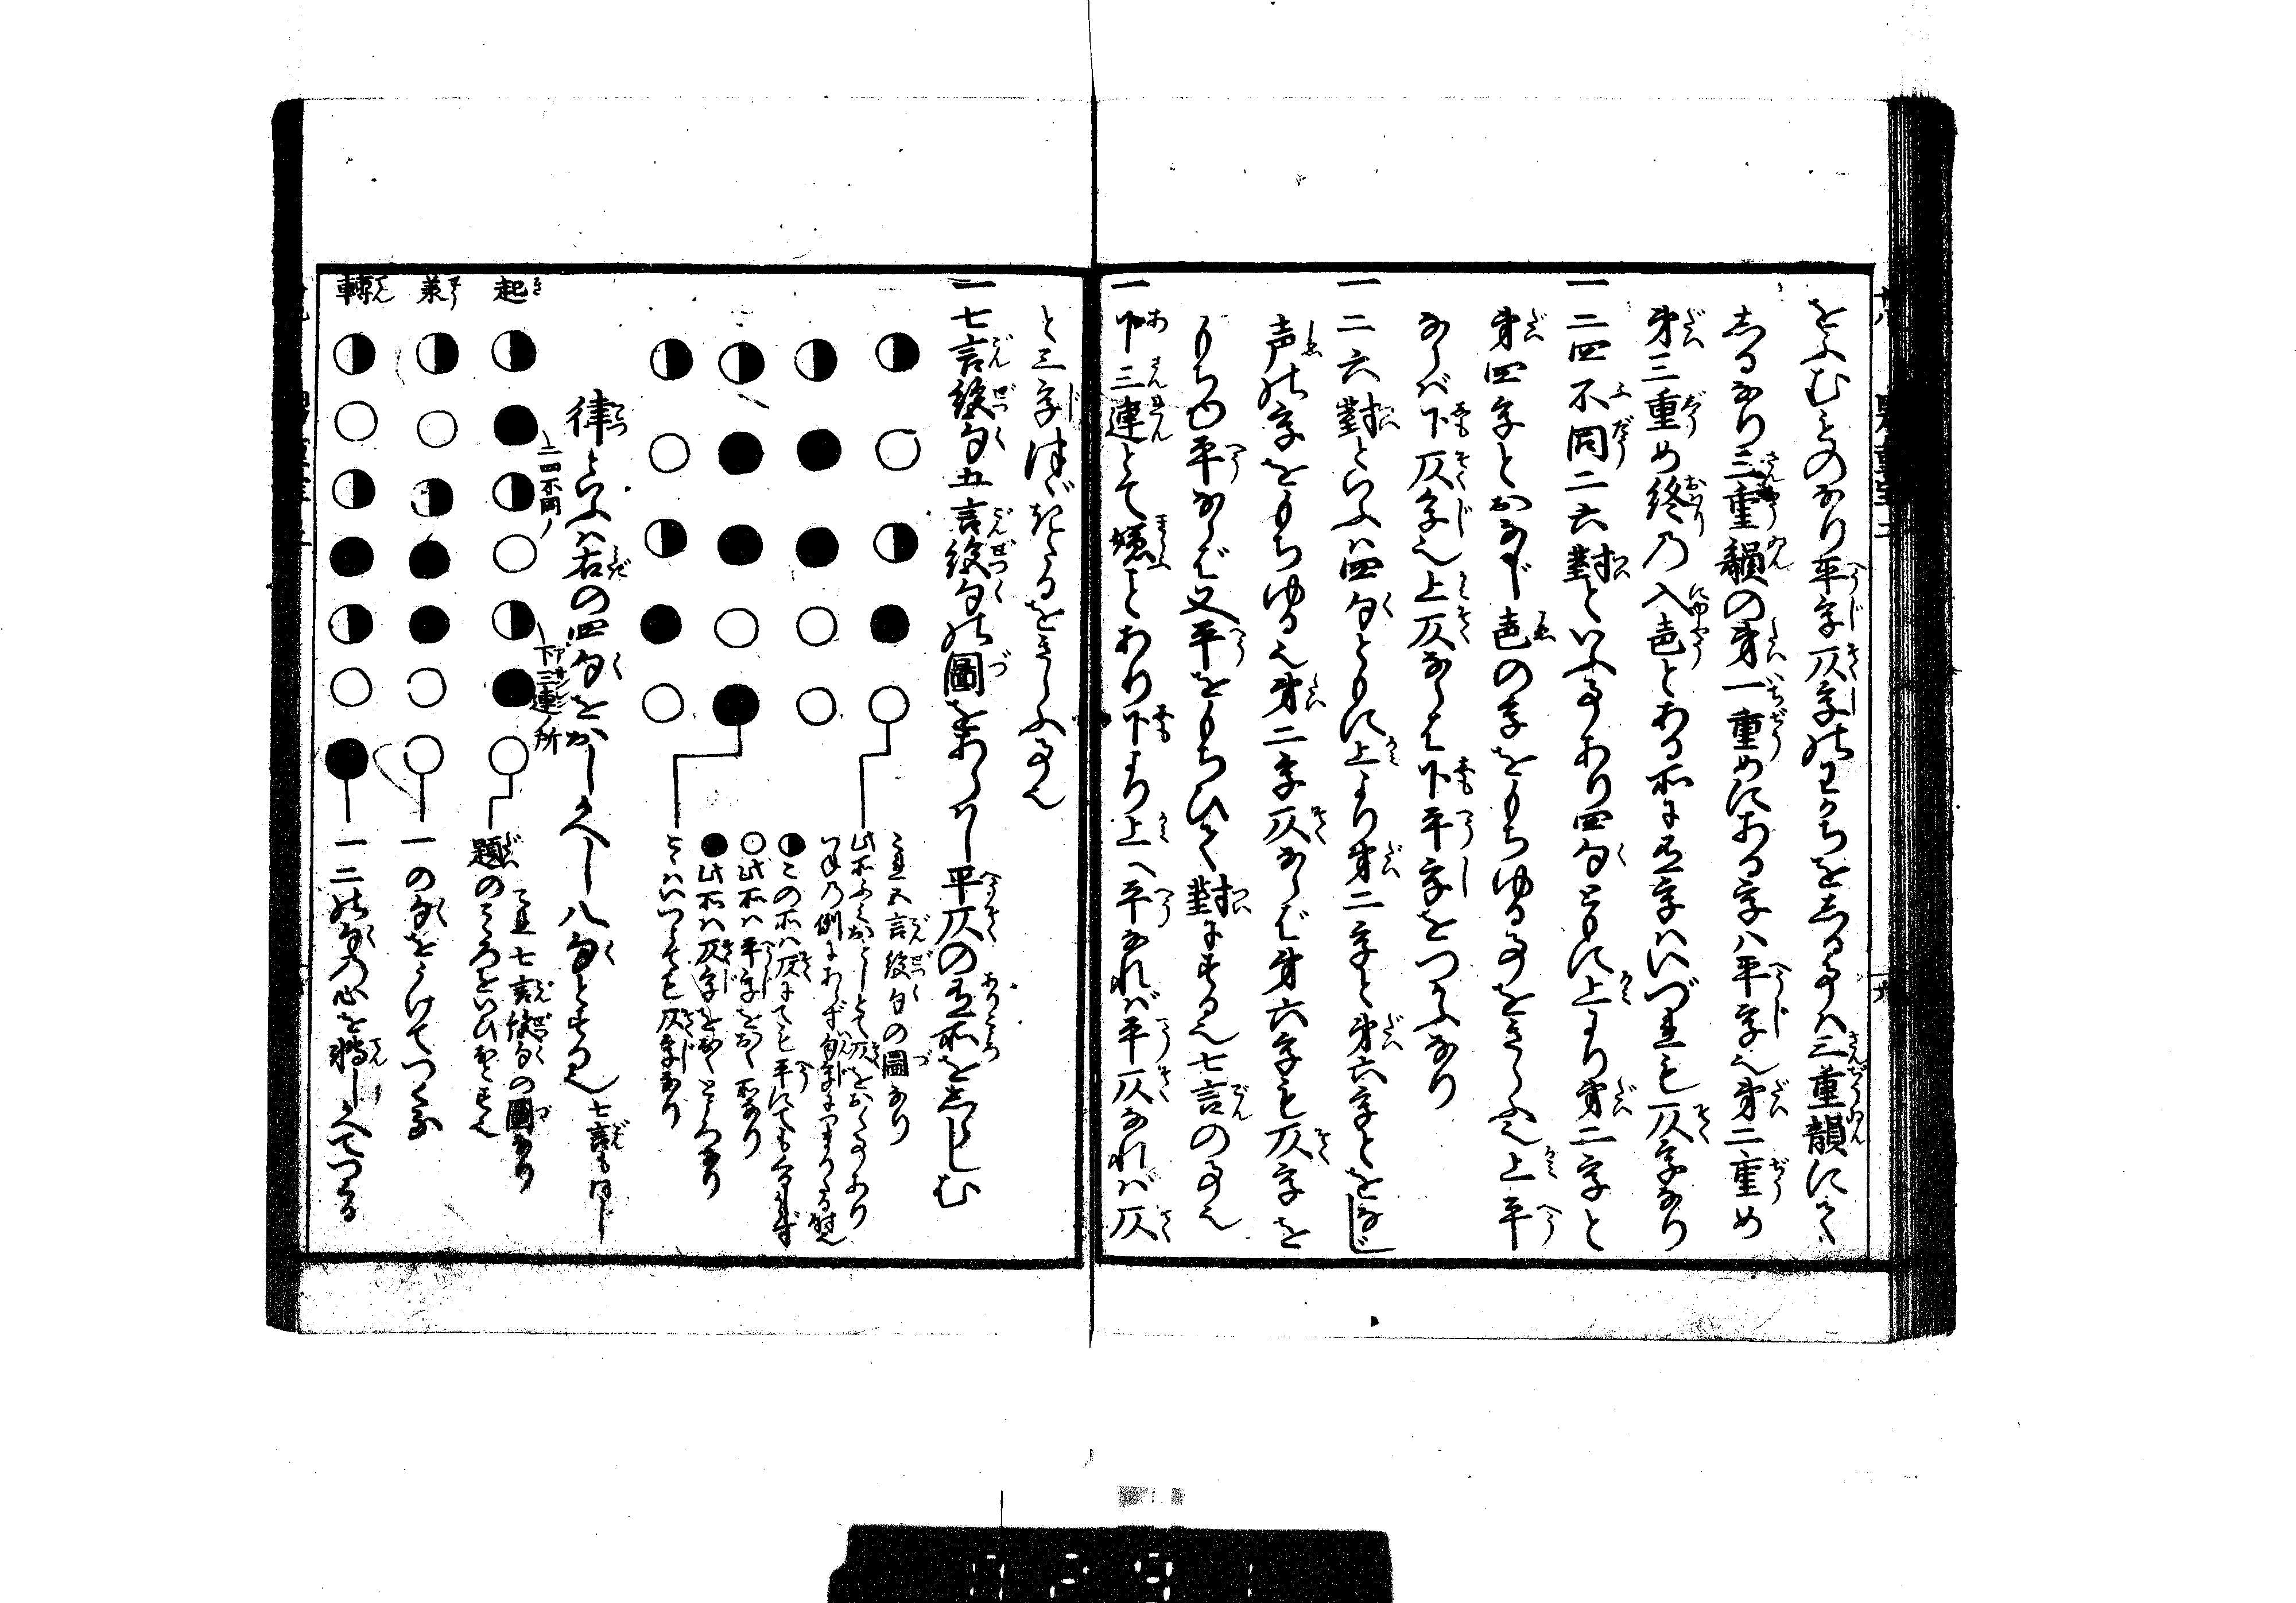 をふむものなり平字仄字のわかちをしる事ハ三重韻にて
しるなり三重韻の第一重めにある字ハ平字也第二重め
第三重め終の入声とある所に有字ハいづれも仄字なり
一二四不同二六對といふ事あり四句ともに上より第二字と
第四字とおなじ声の字をもちゆる事をきらふ也上平
ならバ下仄字也上仄ならば下平字をつかふなり
一二六對といふハ四句ともに上より第二字と第六字とをなじ
声の字をもちゆる也第二字仄ならば第六字も仄字を
もちひ平ならば又平をもちひて對にする也七言の事也
一下三連とて嫌ことあり下より上へ平なれバ平仄なれバ仄
と三字つゞきたるをきらふ事也
一七言絶句五言絶句の圖をあらハし平仄の有所をしらしむ
これ五言絶句の圖なり
此所ふみおとしとて仄をおく事あり
つねの例にあらず
●この所ハ仄にても平にてもくるしからず
○此所ハ平字をおく所なり
●此所ハ仄字をおくところなり
仄字なり
律といふハ右の四句をおしかへし八句とする也 七言も同し
二四不同ノ
下三連ノ所
起
これ七言絶句の圖なり
題のこゝろをいひおこす也
承
一の句をうけてつくる
轉
一二の句の心を轉しかへてつくる